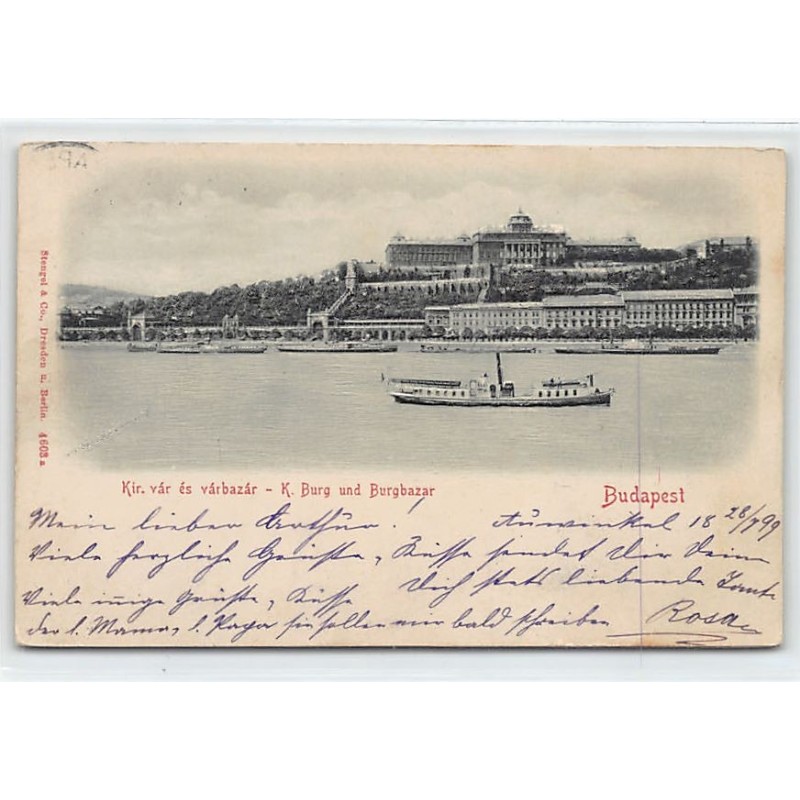 Stengel & Co., Dresden u. Berlin. 4603a
Kir. vár és várbazár - K. Burg und Burgbazar
Budapest
Mein lieber Arthur! Auwinkel 18 28/7 99
Viele herzliche Grüsse, Küsse sendet Dir Deine
Dich stets liebende Tante
Rosa
Viele innige Grüsse, Küsse
der l. Mama, l. Papa sie sollen mir bald schreiben